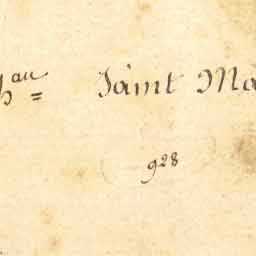 han = Saint Ma
928